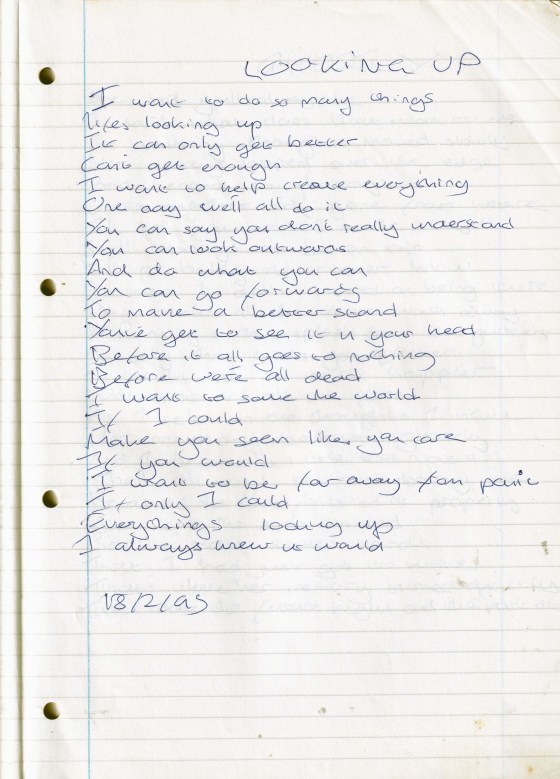 LOOKING UP
I want to do so many things
lifes looking up
It can only get better
Can't get enough
I want to help create everything
One day we'll all do it
You can say you don't really understand
You can look outwards
And do what you can
You can go forwards
To make a better stand
You've get to see it in your head
Before it all goes to nothing
Before we're all dead
I want to save the world
If I could
Make you seem like you care
If you would
I want to be far away from panic
If only I could
Everythings looking up
I always knew it would
18/2/95